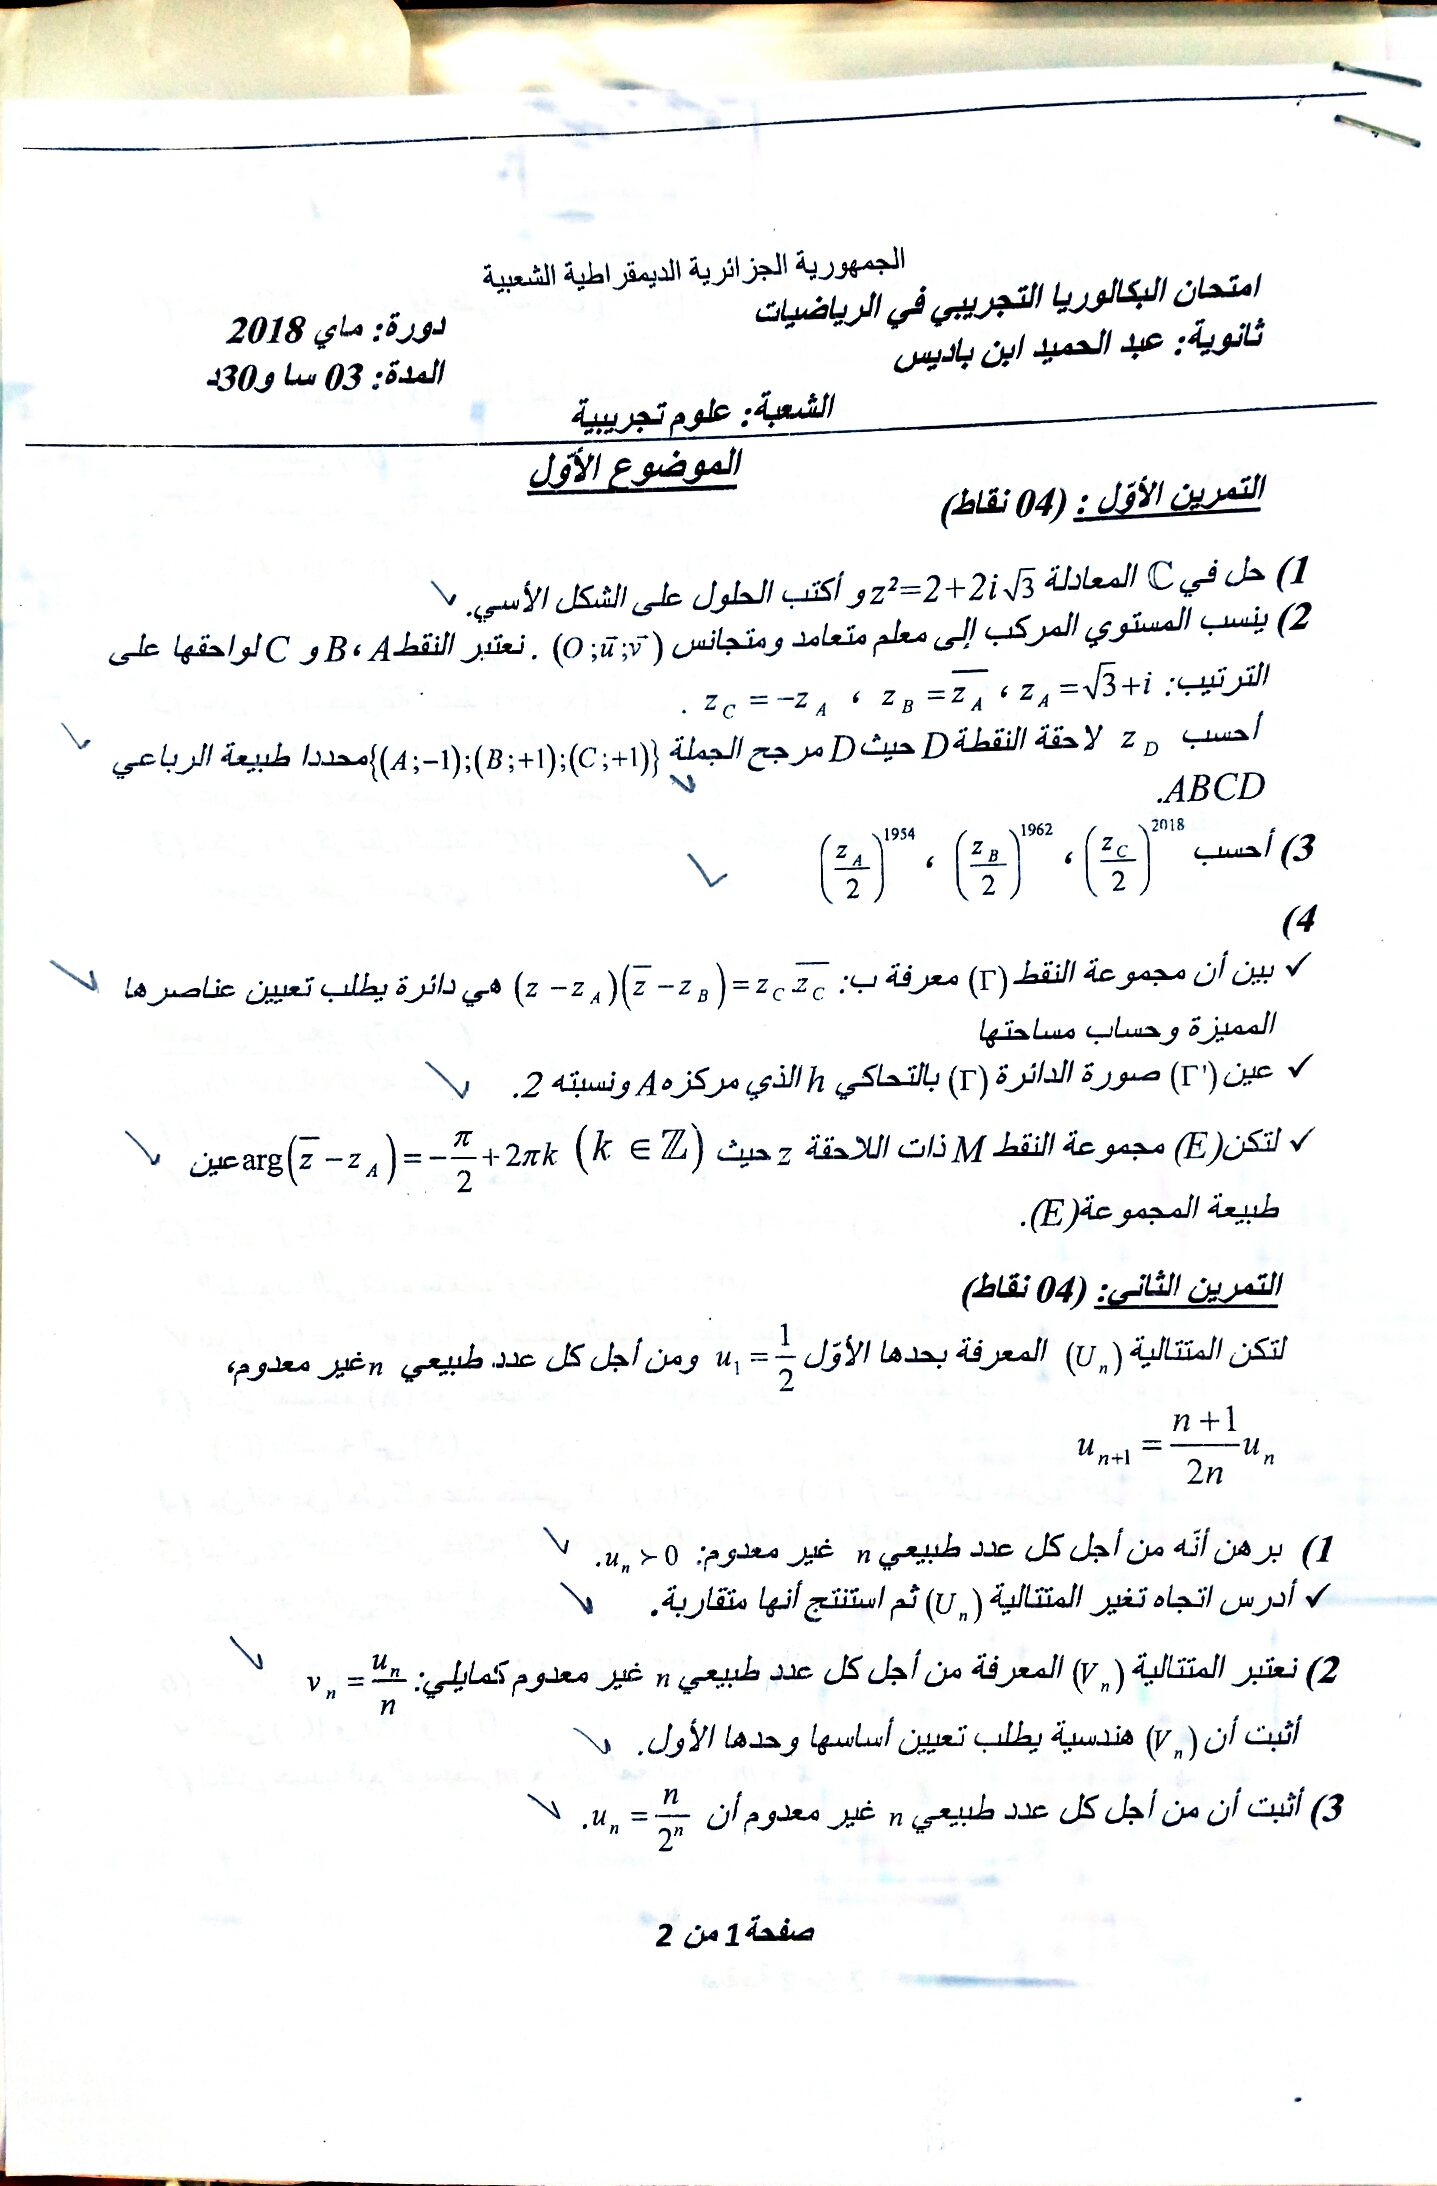 الجمهورية الجزائرية الديمقراطية الشعبية
امتحان البكالوريا التجريبي في الرياضيات
دورة: ماي 2018
ثانوية: عبد الحميد ابن باديس
المدة: 03 سا و30د
الشعبة: علوم تجريبية
الموضوع الأوّل
التمرين الأوّل : (04 نقاط)
1) حل في ℂ المعادلة z²=2+2i√3 و أكتب الحلول على الشكل الأسي.
2) ينسب المستوي المركب إلى معلم متعامد ومتجانس (O;u⃗;v⃗) . نعتبر النقط A، B و C لواحقها على
الترتيب: z_A=√3+i ، z_B=\overline{z_A} ، z_C=-z_A .
أحسب z_D لاحقة النقطة D حيث D مرجح الجملة {(A;-1);(B;+1);(C;+1)} محددا طبيعة الرباعي
ABCD.
3) أحسب (z_C/2)^2018 ، (z_B/2)^1962 ، (z_A/2)^1954
4)
✓ بين أن مجموعة النقط (Γ) معرفة ب: (z-z_A)(\overline{z}-z_B)=z_C.\overline{z_C} هي دائرة يطلب تعيين عناصرها
المميزة وحساب مساحتها
✓ عين (Γ') صورة الدائرة (Γ) بالتحاكي h الذي مركزه A ونسبته 2.
✓ لتكن (E) مجموعة النقط M ذات اللاحقة z حيث arg(\overline{z}-z_A)=-π/2+2πk (k∈ℤ) عين
طبيعة المجموعة (E).
التمرين الثاني: (04 نقاط)
لتكن المتتالية (U_n) المعرفة بحدها الأوّل u_1=1/2 ومن أجل كل عدد طبيعي n غير معدوم،
u_{n+1}=\frac{n+1}{2n}u_n
1) برهن أنّه من أجل كل عدد طبيعي n غير معدوم: u_n≻0.
✓ أدرس اتجاه تغير المتتالية (U_n) ثم استنتج أنها متقاربة.
2) نعتبر المتتالية (V_n) المعرفة من أجل كل عدد طبيعي n غير معدوم كمايلي: v_n=\frac{u_n}{n}
أثبت أن (V_n) هندسية يطلب تعيين أساسها وحدها الأول.
3) أثبت أن من أجل كل عدد طبيعي n غير معدوم أن u_n=\frac{n}{2^n}.
صفحة 1 من 2